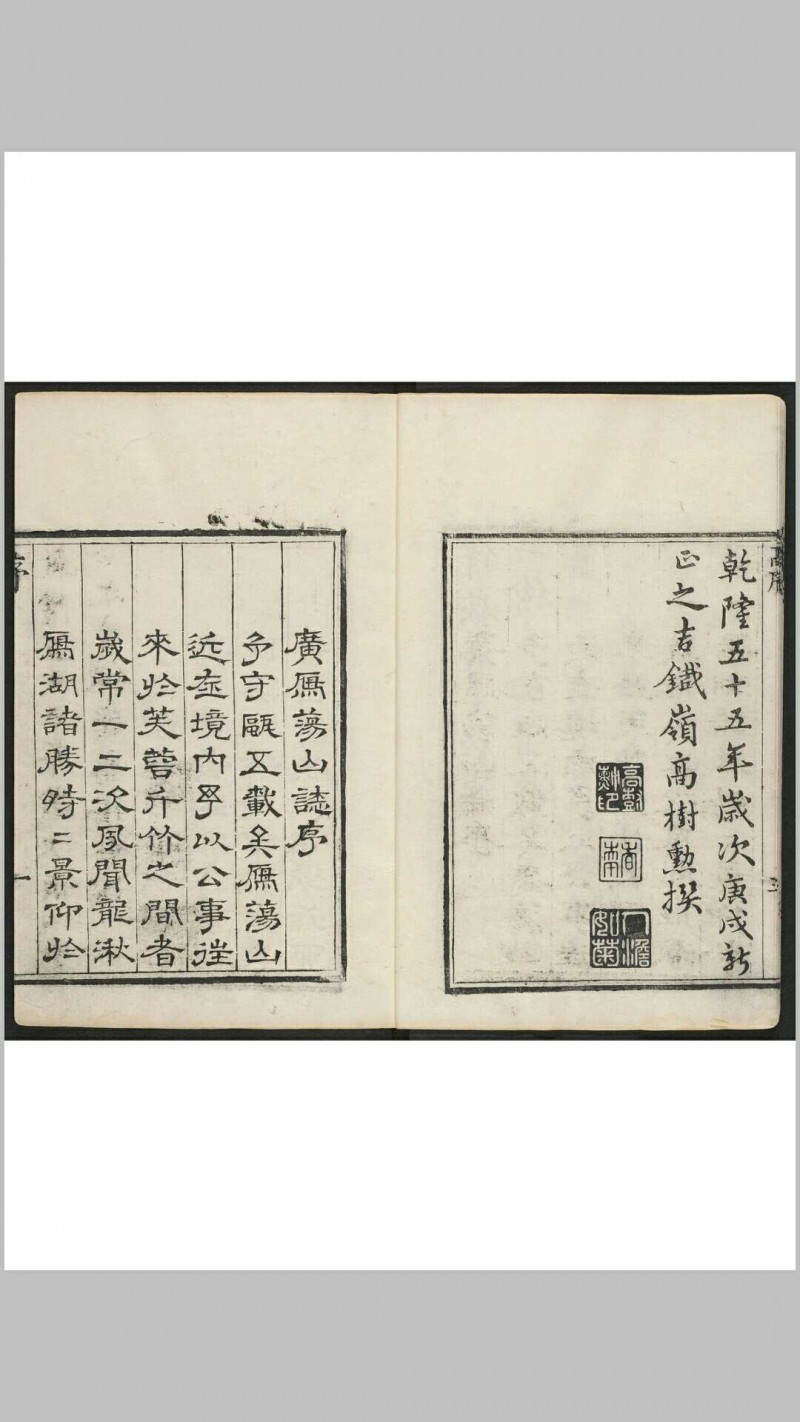 高序
乾隆五十五年歲次庚戌新
正之吉鐵嶺高樹勳撰
人澹如菊
廣雁蕩山誌序
予守甌五載矣雁蕩山
近在境內予以公事往
來於芙蓉斤竹之間者
歲常一二次夙聞龍湫
雁湖諸勝時二景仰於
序
一